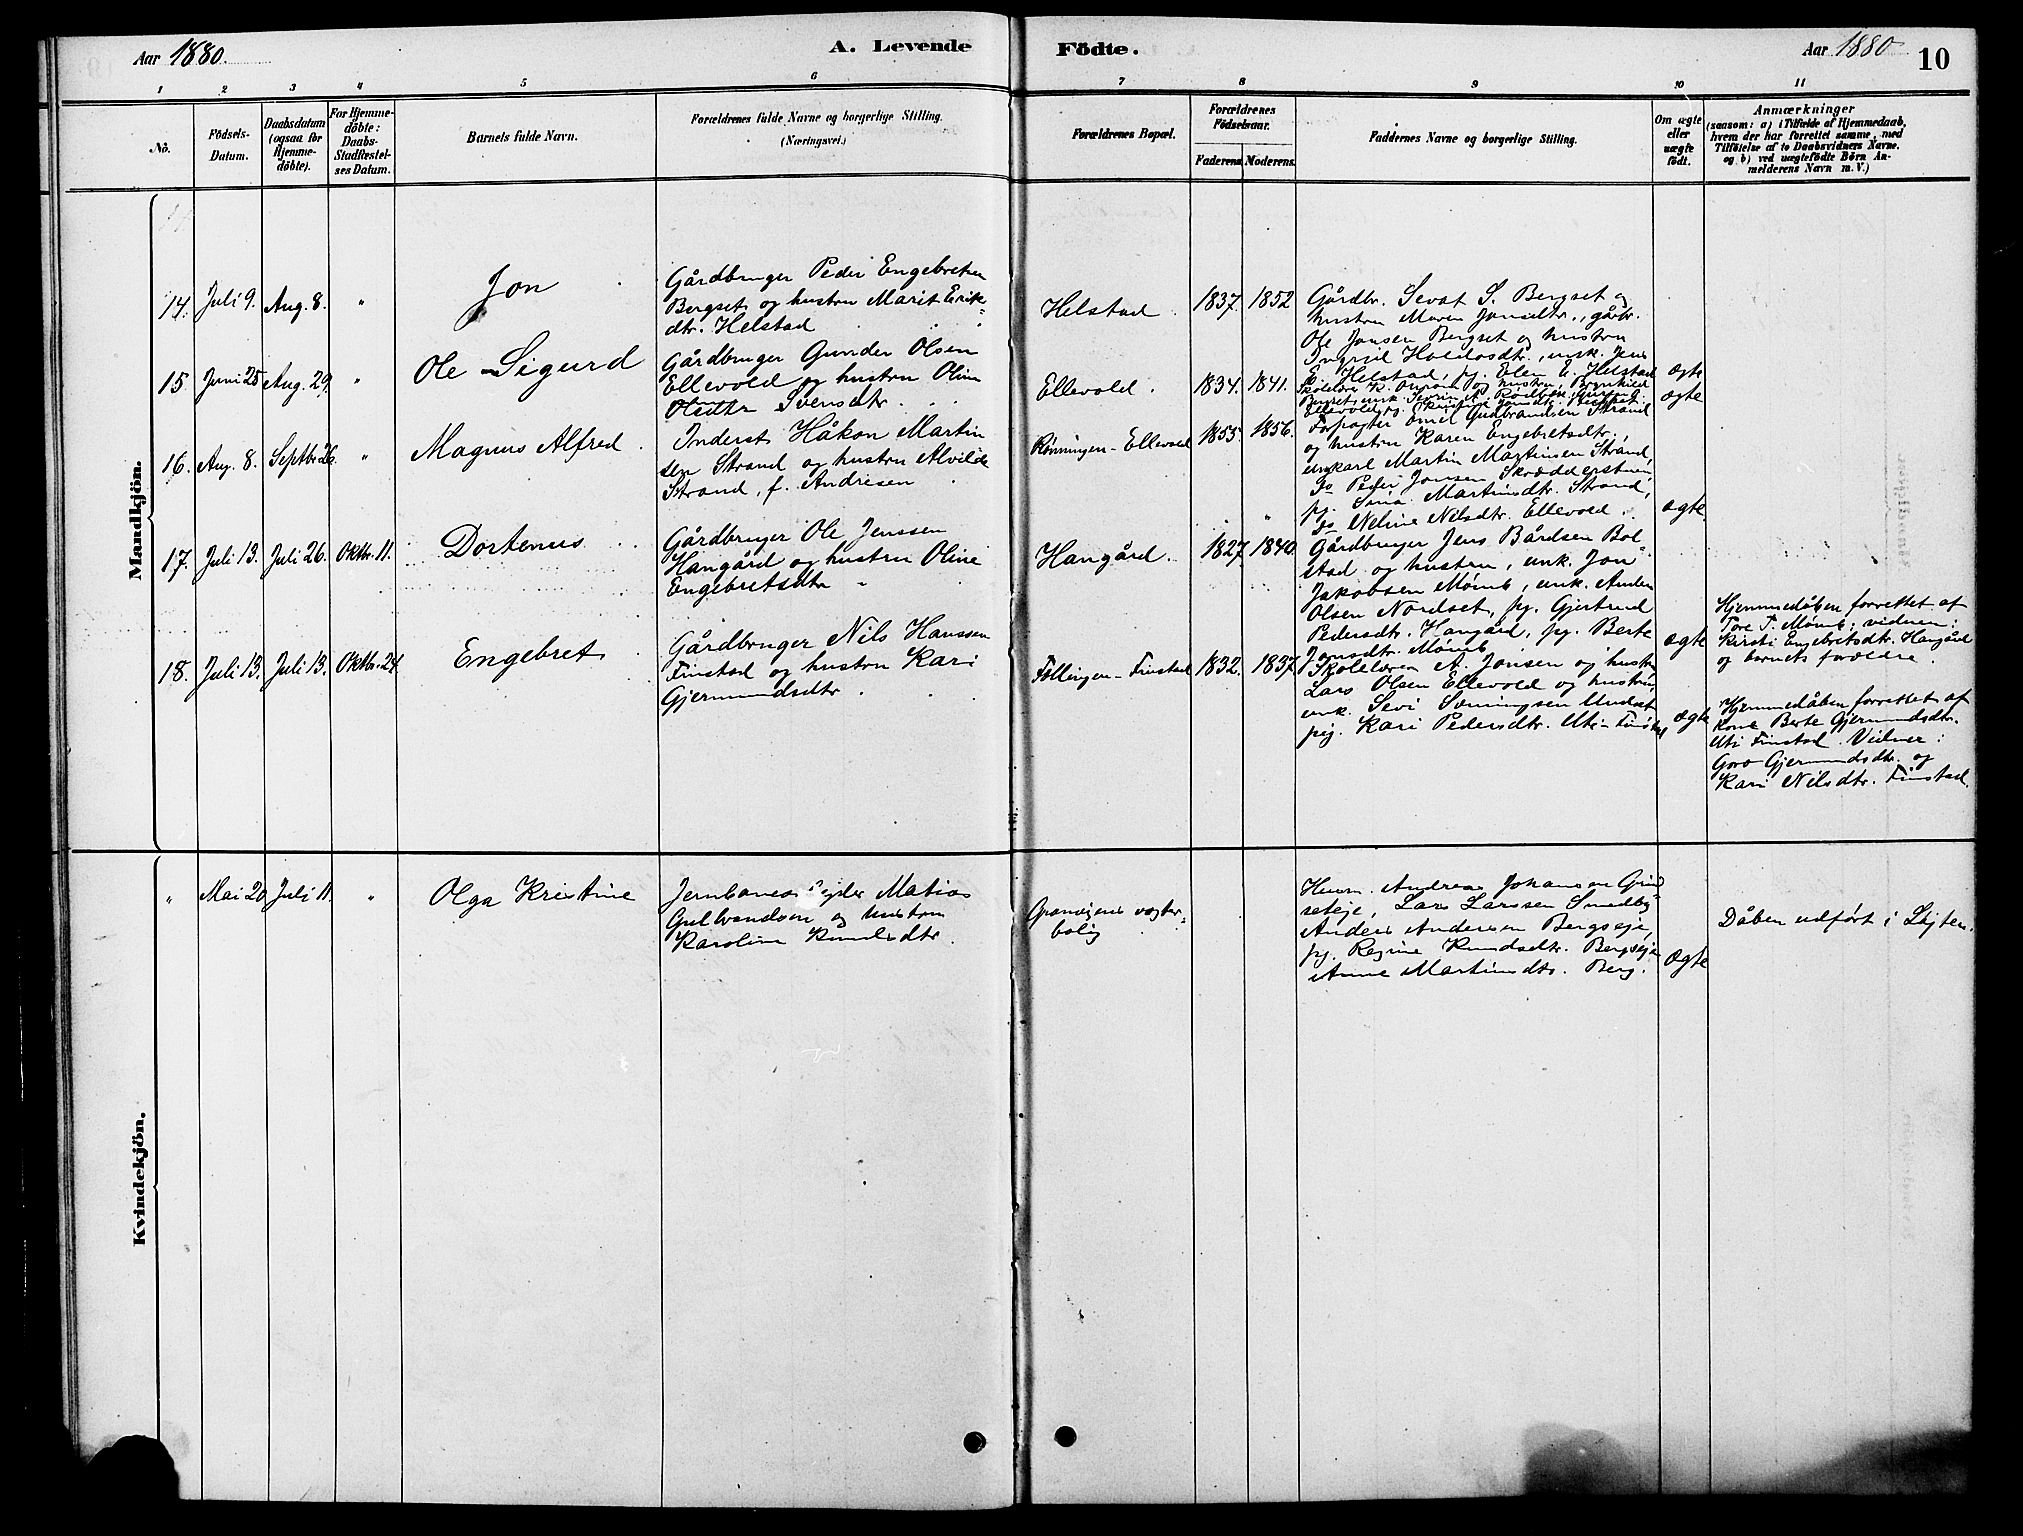 Aar 1880. A. Levende Födte. Aar 1880 10
1 2 3 4 5 6 7 8 9 10 11
No.
Födsels-
Datum.
Daabsdatum
(ogsaa for
Hjemme-
döbte).
For Hjemme-
döbte:
Daabs-
Stadfæstel-
ses Datum.
Barnets fulde Navn.
Forældrenes fulde Navne og borgerlige Stilling.
(Næringsvei.)
Forældrenes Bopæl.
Forældrenes
Födselsaar.
Faderens. Moderens.
Faddernes Navne og borgerlige Stilling.
Om ægte
eller
uægte
födt.
Anmærkninger
(saasom: a) i Tilfælde af Hjemmedaab,
hvem der har forrettet samme, med
Tilföielse af to Daabsvidners Navne.
og b) ved uægtefödte Börn An-
melderens Navn m. V.)
Mandkjön.
14. Juli 9. Aug. 8. " Jon
Gårdbruger Peder Engebretsen
Bergset og hustru Marit Erik-
dtr. Helstad
Helstad 1837. 1852
Gårdbr. Sevat S. Bergset og
hustru Maren Jonsdtr., gårbr.
Ole Jonsen Bergset og hustru
Ingrjil Haldosdtr., unk. Jens
E. Helstad, pj. Elen E. Helstad
ægte
15. Juni 25 Aug. 29. " Ole Sigurd
Gårdbruger Gunder Olsen
Ellevold og hustru Oline
Olsdtr Svensdtr.
Ellevold. 1834. 1841.
og hustru, Brynhild
ægte
16. Aug. 8. Septbr 26. " Magnus Alfred
Inderst Håkon Martin
sen Strand og hustru Alvilde
Strand, f. Andresen
Rønningen-Ellevold 1855. 1856.
Forpagter Emil Gudbrandsen Strand
og hustru Karen Engebretsdtr.
unkarl Martin Martinsen Strand,
Do Peder Jonsen Skrædderstuen
pj. Sina Martinsdtr. Strand,
Do Neline Nilsdtr. Ellevold.
ægte
17. Juli 13. Juli 26. Oktbr. 11. Dortenus
Gårdbruger Ole Jenssen
Hangård og hustru Oline
Engebretsdtr
Hangård. 1827. 1840.
Gårdbruger Jens Bårdsen Bol
stad og hustru, unk. Jon
Jakobsen Mømb, unk. Anders
Olsen Nordset, pg. Gjertrud
Pedersdtr. Hangård, pg. Berte
Jonsdtr. Mømb
ægte
Hjemmedåben forrettet af
Tore T. Mømb; vidner:
Kirsti Engebretsdtr. Hangård
og barnets forældre.
18. Juli 13. Juli 13. Oktbr. 24. Engebret
Gårdbruger Nils Hanssen
Finstad og hustru Kari
Gjermundsdtr.
Føllingen-Finstad 1832. 1837.
Skolelærer A. Jonsen og hustru
Lars Olsen Ellevold og hustru,
unk. Sevi Sømingsen Undset
pig. Kari Pedersdtr. Uti-Finstad
ægte
Hjemmedåben forrettet af
Kone Berte Gjermundsdtr.
Uti Finstad. Vidner:
Goro Gjermundsdtr. og
Kari Nilsdtr. Finstad.
Kvindekjön.
" Mai 20 Juli 11 " Olga Kristine
Matias
Gulbrandsen og hustru
Karoline Knudsdtr.
Granvigens vogter-
bolig
Husm. Andreas Johansen Grind
seteje, Lars Larssen Smedby-
Anders Andersen Bergseje,
pg. Regine Knudsdtr. Bergseje
Anne Martinsdtr. Berg.
ægte
Dåben udført i Løjten.